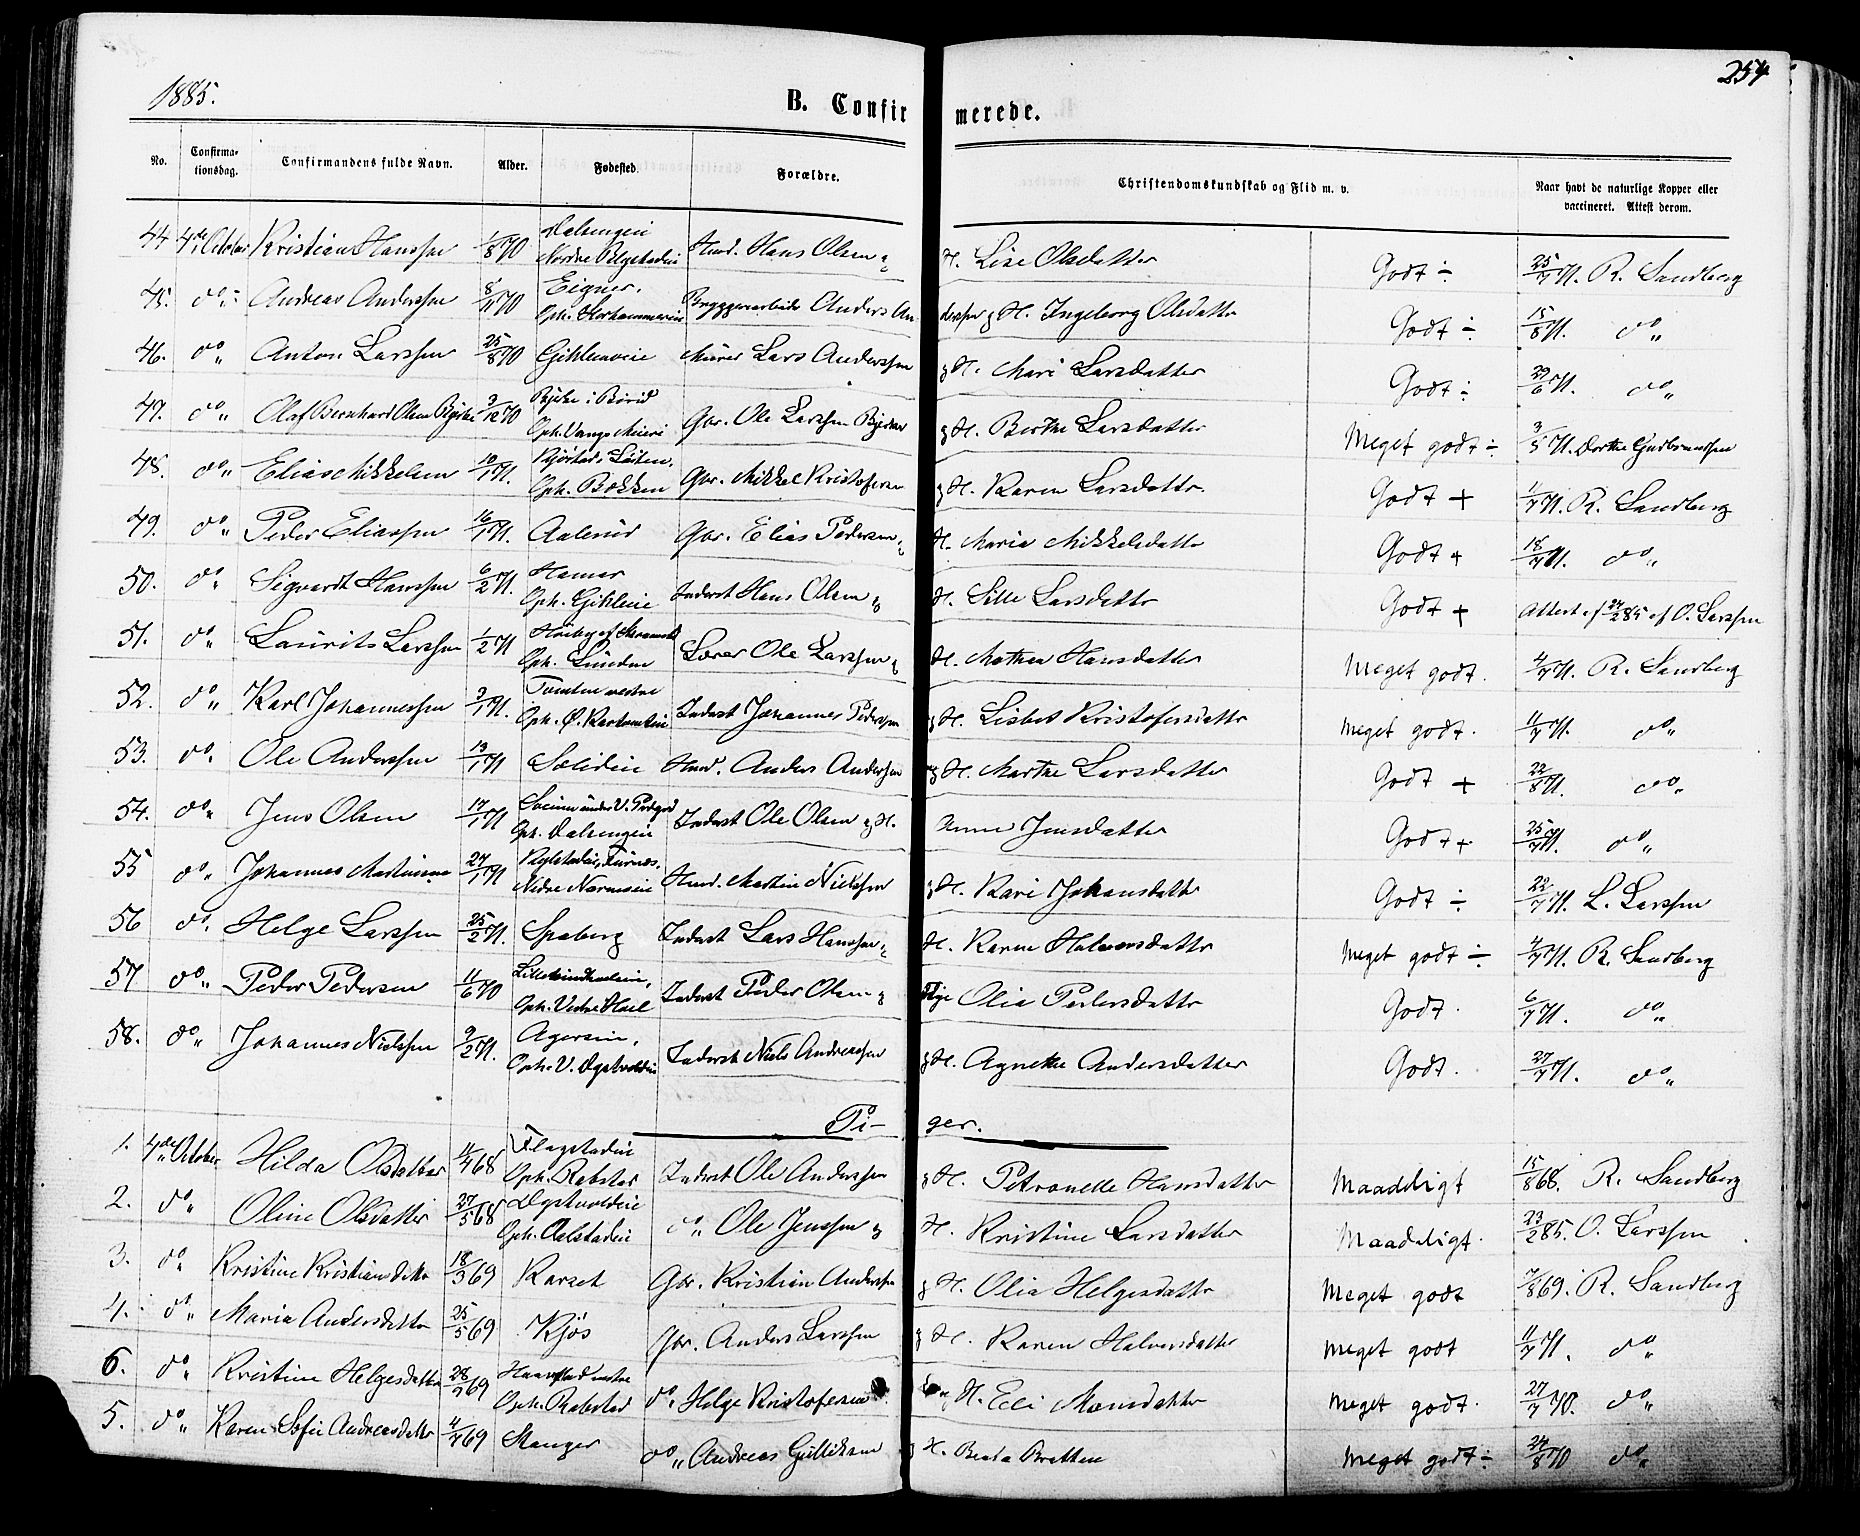 1885.
254
B. Confirmerede.
No. Confirmationsdag. Confirmandens fulde Navn. Alder. Fødested. Forældre. Christendomskundskab og Flid m. v. Naar havt de naturlige Kopper eller vaccineret. Attest derom.
44 4de October Kristian Hanssen 1/8 70 Dalsengeie Hmd. Hans Olsen og H. Lise Olsdatter Godt ÷ 25/7 71. R. Sandberg
45. do „ Andreas Anderssen 8/11 70 Eigner. Oph. Storhammereie Bryggeriarbeider Anders Anderssen og H. Ingeborg Olsdatter Godt ÷ 15/8 71. do „
46. do „ Anton Larssen 25/8 70 Giklumeie Murer Lars Anderssen og H. Mari Larsdatter Godt ÷ 29/6 71. do „
47. do „ Olaf Bernhard Olsen Bjerke 3/12 70 Oph. Vangs Meieri Gbr. Ole Larssen Bjerke og H. Berthe Larsdatter Meget godt ÷ 3/5 71. Dorthe Gudbrandssen
48. do „ Elias Mikkelsen 10/1 71. Oph. Bekken Gbr. Mikkel Kristofersen og H. Karen Larsdatter. Godt + 1/7 71. R. Sandberg
49. do „ Peder Eliassen 16/1 71. Aalerud Gbr. Elias Pedersen og H. Maria Mikkelsdatter Godt + 18/7 71. do „
50. do „ Sigvardt Hanssen 6/2 71. Hamar Oph. Gikleie Inderst Hans Olsen og H. Sille Larsdatter Godt + Attest af 24/2 85 af O. Larssen
51. do „ Laurits Larssen 1/2 71 Oph. Lunden Lærer Ole Larssen og H. Mathea Hansdatter Meget godt. 4/7 71. R. Sandberg
52. do „ Karl Johannessen 3/1 71. Tomten vestre Inderst Johannes Pederssen og H. Lisbet Kristofersdatter Meget godt. 11/7 71. do „
53. do. Ole Anderssen 13/1 71 Solideie Hmd. Anders Anderssen og H. Marthe Larsdatter Godt + 22/8 71. do „
54. do „ Jens Olsen 17/1 71 Oph. Dalsengeie Inderst Ole Olsen og H. Anne Jensdatter Godt + 25/7 71. do „
55 do „ Johannes Martinssen 27/1 71 Hmd. Martin Nielssen og H. Kari Johansdatter Godt ÷ 22/7 71. L. Larssen
56 do. Helge Larssen 25/2 71. Spaberg Inderst Lars Hanssen og H. Karen Halvorsdatter Meget godt ÷ 4/7 71. R. Sandberg
57 do „ Peder Pedersen 11/6 70 Inderst Peder Olsen og Pige Olia Pedersdatter Godt. 6/7 71. do „
58. do „ Johannes Nielssen 9/2 71. Agerseie, Inderst Niels Andreassen og H. Agnethe Andersdatter Godt. 27/7 71. do „
Piger.
1. 4de October Hilda Olsdatter 11/4 68 Flagstadeie Oph. Rabstad Inderst Ole Anderssen og H. Petronelle Hansdatter Maadeligt 15/8 68. R. Sandberg
2. do „ Oline Olsdatter 27/5 68 do „ Ole Jenssen og H. Kristine Larsdatter Maadeligt. 23/2 85. O. Larssen
3. do „ Kristine Kristiansdatter 18/3 69 Karset Gbr. Kristian Anderssen og H. Olia Helgesdatter Meget godt 7/8 69. R. Sandberg
4. do „ Maria Andersdatter 25/5 69 Kjøs Gbr. Anders Larssen og H. Karen Halvorsdatter Meget godt 11/7 71. do „
6. do „ Kristine Helgesdatter 28/7 69 Oph. Rabstad do Helge Kristofersen og H. Eli Monsdatter Meget godt. 27/7 70. do „
5. do „ Karen Sofie Andreasdatter 4/7 69 Stanger do „ Andreas Gulliksen og H. Beata Bratten Meget godt ÷ 24/8 70 do „